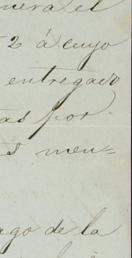 nera el
2 á cuyo
entregado
as por
s men=
ago de la